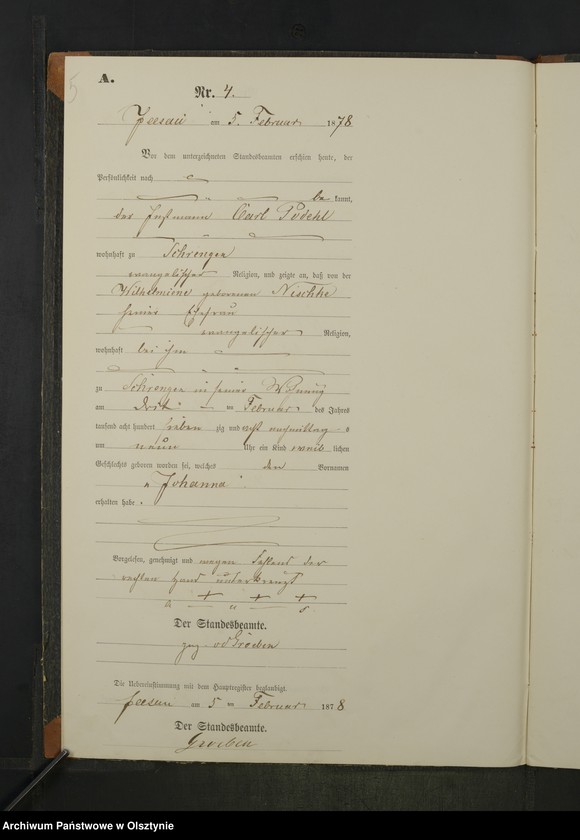 5
A.
Nr. 4.
Jeesau am 5. Februar 1878
Vor dem unterzeichneten Standesbeamten erschien heute, der
Persönlichkeit nach
bekannt,
der Carl Podehl
wohnhaft zu Schrengen
evangelischer Religion, und zeigte an, daß von der
Wilhelmine geborenen Nischke
seiner Ehefrau
evangelischer Religion,
wohnhaft bei ihm
zu Schrengen in seiner Wohnung
am drit ten Februar des Jahres
tausend acht hundert sieben zig und acht nachmittags
um neun Uhr ein Kind weib lichen
Geschlechts geboren worden sei, welches den Vornamen
"Johanna"
erhalten habe.
Vorgelesen, genehmigt und wegen Fehlens der
rechten Hand unterkreuzt
+ + +
Der Standesbeamte.
gez. vdGröben
Die Uebereinstimmung mit dem Hauptregister beglaubigt.
Jeesau am 5 ten Februar 1878
Der Standesbeamte.
Groeben
Archiwum Państwowe w Olsztynie